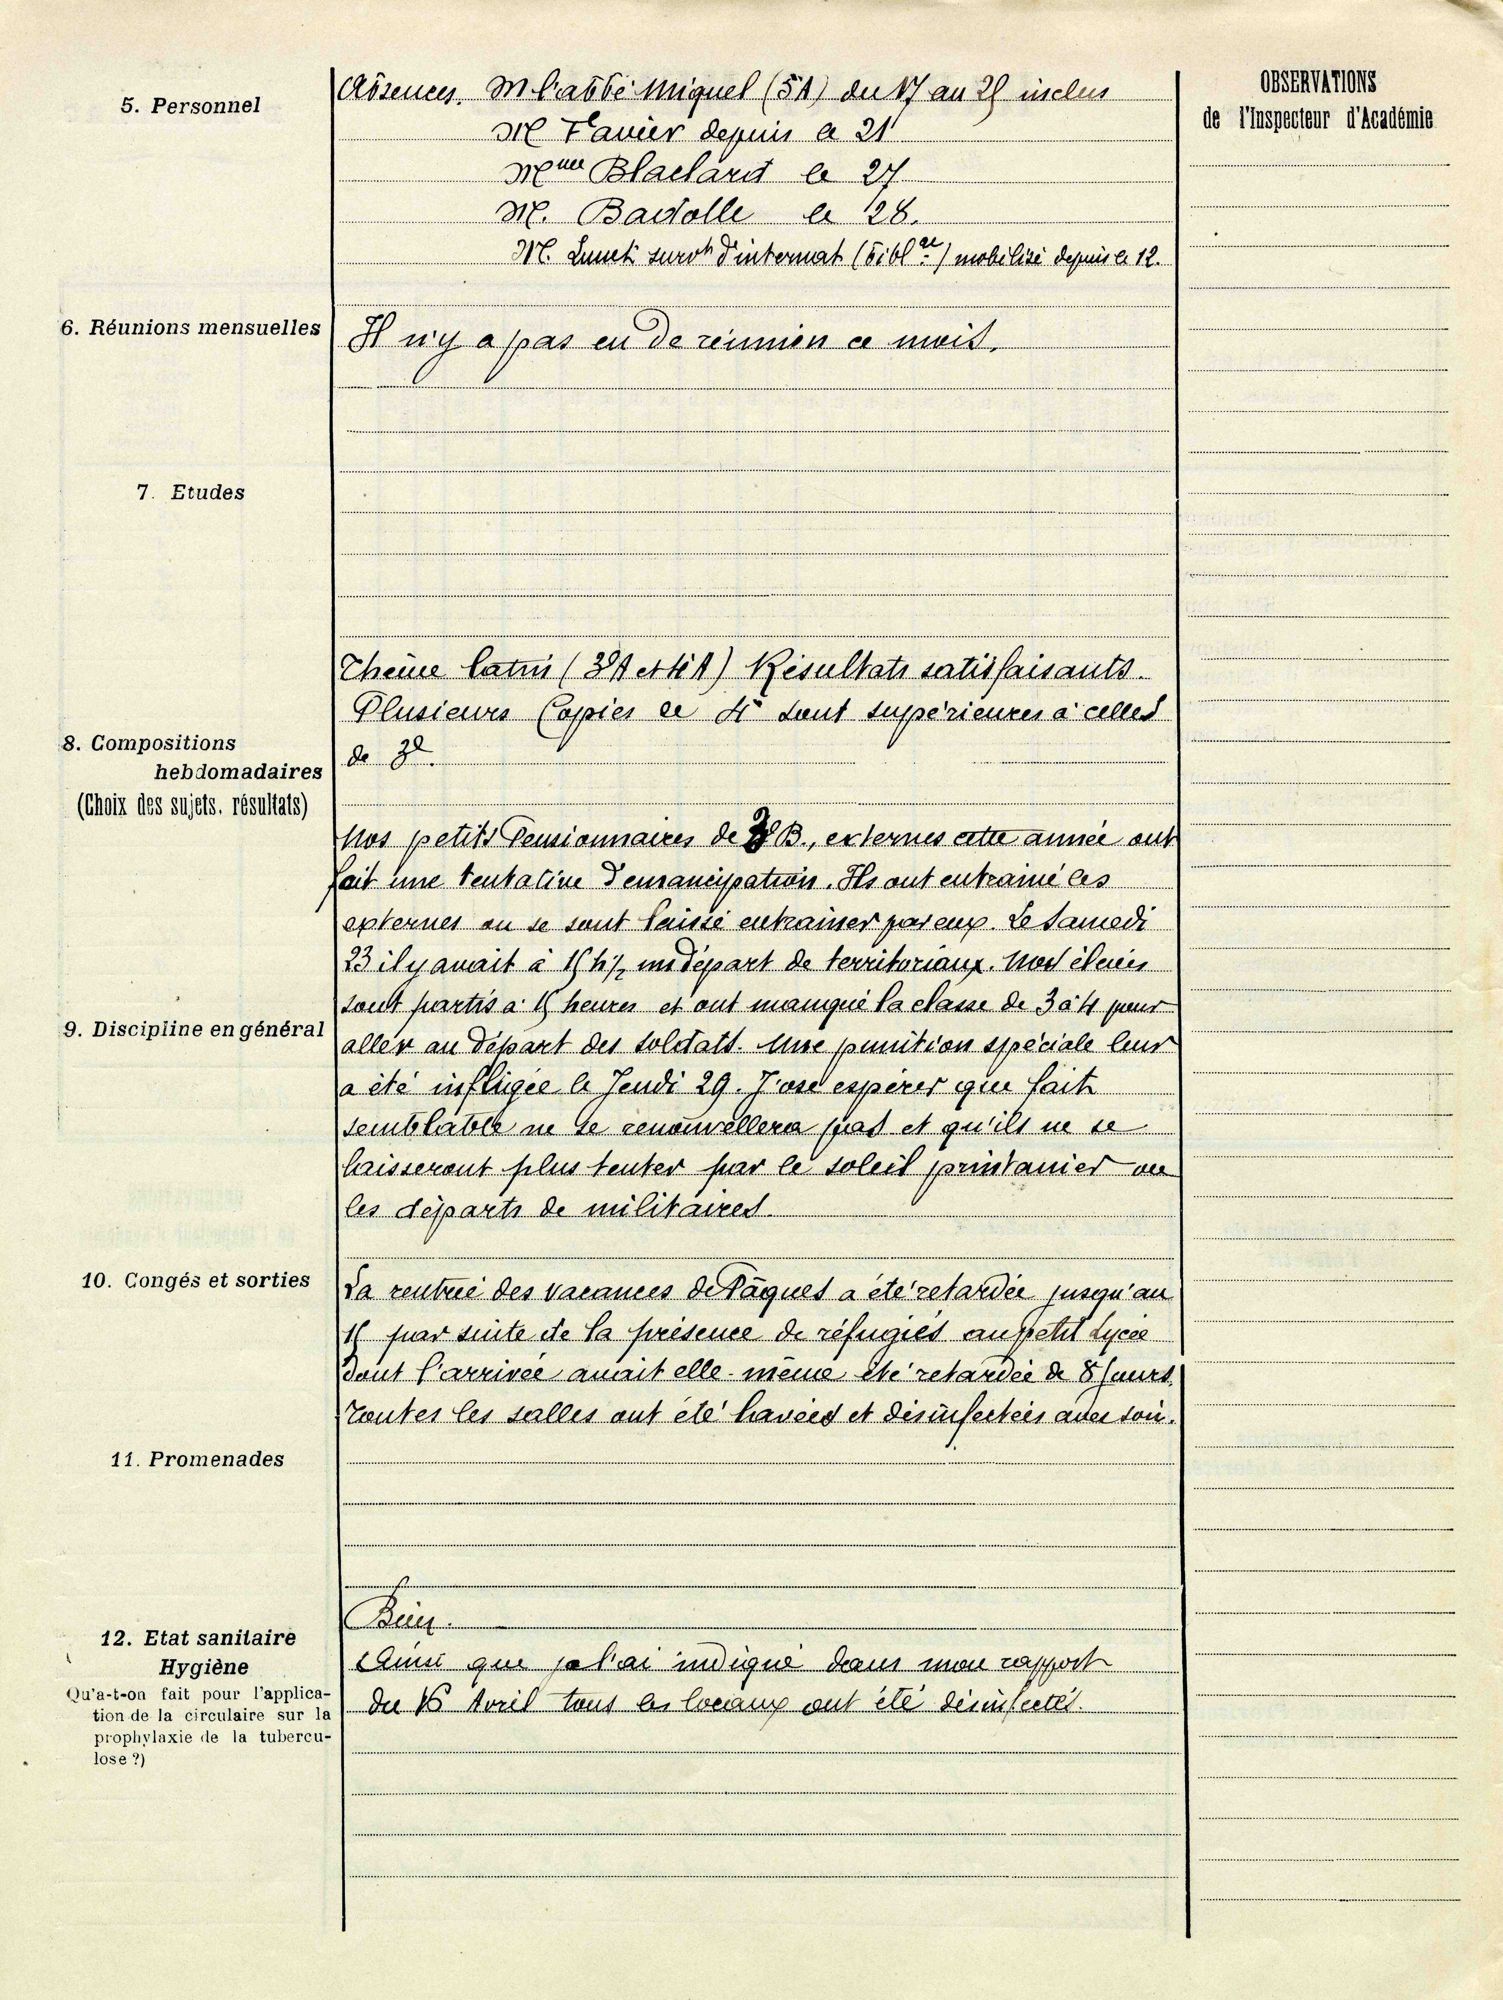 5. Personnel
Absences. M l'abbé Miquel (5A) du 17 au 25 inclus
M Favier depuis le 21
Mme Blachard le 27
M. Badolle le 28.
M. survt d'internat (bibl re) mobilisé depuis le 12.
OBSERVATIONS
de l'Inspecteur d'Académie
6. Réunions mensuelles
Il n'y a pas eu de réunion ce mois.
7. Etudes
8. Compositions
hebdomadaires
(Choix des sujets. résultats)
Thème latin (3e A et 4e A) Résultats satisfaisants.
Plusieurs Copies de 4e sont supérieures à celles
de 3e.
9. Discipline en général
Nos petits Pensionnaires de B., externes cette année ont
fait une tentative d'émancipation. Ils ont entrainé les
externes ou se sont laissé entrainer par eux. Le Samedi
23 il y avait à 15 h ½ un départ de territoriaux. Nos élèves
sont partis à 15 heures et ont manqué la classe de 3 à 4 pour
aller au départ des soldats. Une punition spéciale leur
a été infligée le Jeudi 29. J'ose espérer que fait
semblable ne se renouvellera pas et qu'ils ne se
laisseront plus tenter par le soleil printanier ou
les départs de militaires.
10. Congés et sorties
La rentrée des vacances de Pâques a été retardée jusqu'au
15 par suite de la présence de réfugiés au petit Lycée
dont l'arrivée avait elle-même été retardée de 8 jours.
Toutes les salles ont été lavées et désinfectées avec soin.
11. Promenades
12. Etat sanitaire
Hygiène
Qu'a-t-on fait pour l'applica-
tion de la circulaire sur la
prophylaxie de la tubercu-
lose ?)
Bien.
Ainsi que je l'ai indiqué dans mon rapport
du 16 Avril tous les locaux ont été désinfectés.